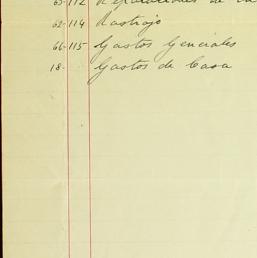 63-112 Reparaciones de
62-114 Rastrojo
66-115 Gastos Generales
18- Gastos de Casa